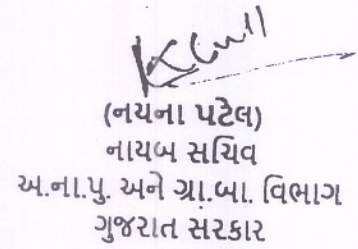 (નયના પટેલ)
નાયબ સચિવ
અ.ના.પુ. અને ગ્રા.બા. વિભાગ
ગુજરાત સરકાર